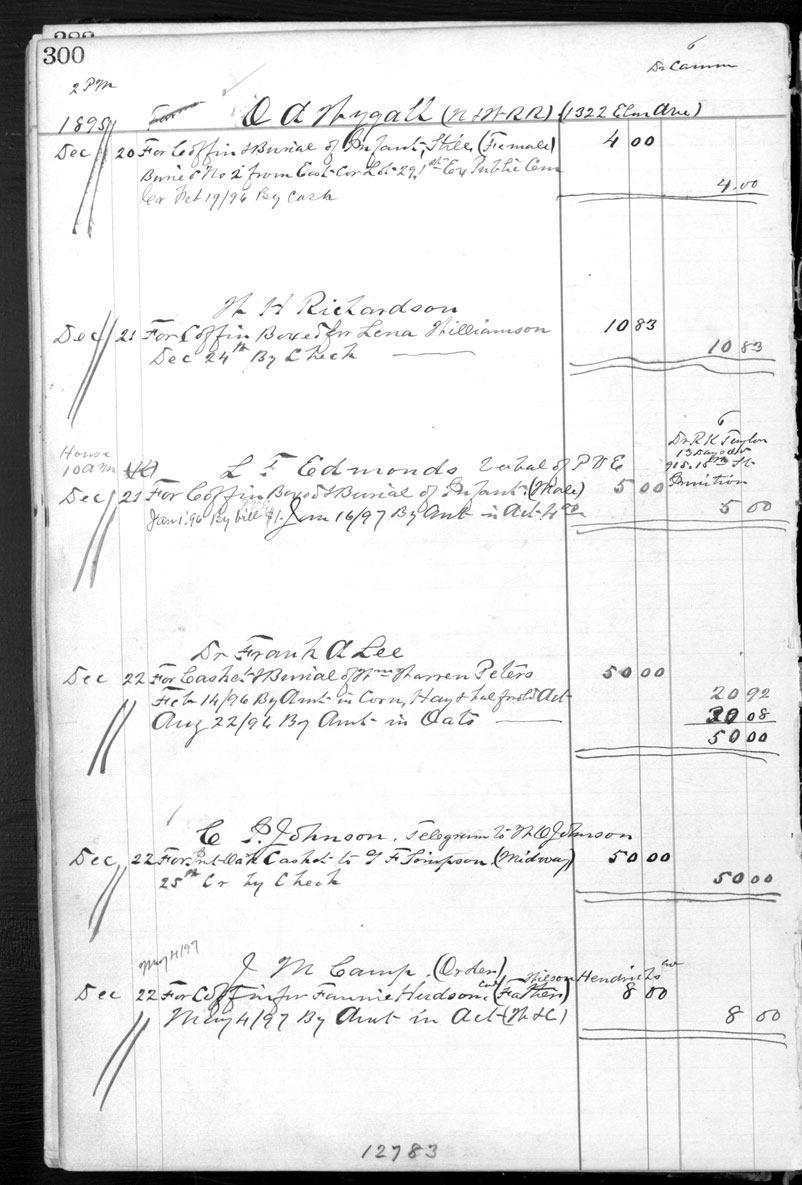 300
6
Dr Camm
2 PM
1895 O A Wygall (N & W RR) (1322 Elm Ave)
Dec 20 For Coffin & Burial of Infant, Still (Female) 4 00
Buried No 2 from East Cor Lot 29, 1st Ex Public Cem 4.00
Cr Feb 19/96 By Cash
W H Richardson
Dec 21 For Coffin Boxed for Lena Williamson 10 83
Dec 24th By Check 10 83
6
House
10 am L F Edmonds Verbal of P D E Dr R K Taylor
13 Days old
915. 18th St
Dec 21 For Coffin Boxed & Burial of Infant (Male) 5 00
Jan 1. 96 By bill $1. Jan 16/97 By Amt in Act 4 00 5 00
Dr Frank A Lee
Dec 22 For Casket & Burial of Warren Peters 50 00
Feb 14/96 By Amt in Corn, Hay & Act 20 92
Aug 22/96 By Amt in Oats 08
50 00
C P. Johnson. Telegram to W O Johnson
Dec 22 For Oak Casket to G F Simpson (Midway) 50 00
25th Cr by Check 50 00
May 4/97
J M Camp. (Order) Wilson Hendricks
Dec 22 For Coffin for Fannie Hudson (Father) 8 00
May 4/97 By Amt in Act (W & C) 8 00
12783